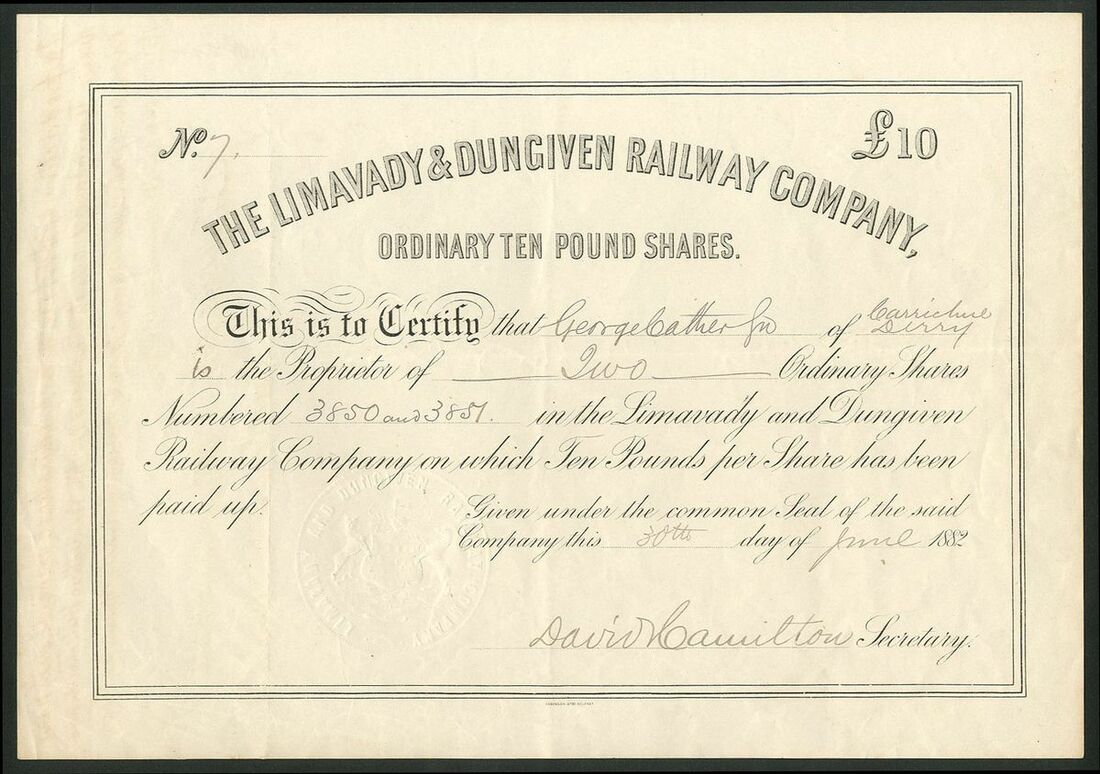 No. 7.
£10
THE LIMAVADY & DUNGIVEN RAILWAY COMPANY,
ORDINARY TEN POUND SHARES.
This is to Certify that George Cather Jn of
Derry
is the Proprietor of Two Ordinary Shares
Numbered 3850 and 3851. in the Limavady and Dungiven
Railway Company on which Ten Pounds per Share has been
paid up. Given under the common Seal of the said
Company this 30th day of June 1882
David Hamilton Secretary.
LIMAVADY AND DUNGIVEN RAILWAY COMPANY